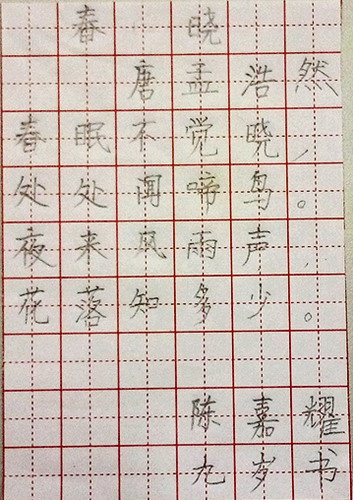 春晓
唐孟浩然
春眠不觉晓，
处处闻啼鸟。
夜来风雨声，
花落知多少。
陈嘉耀
九岁书